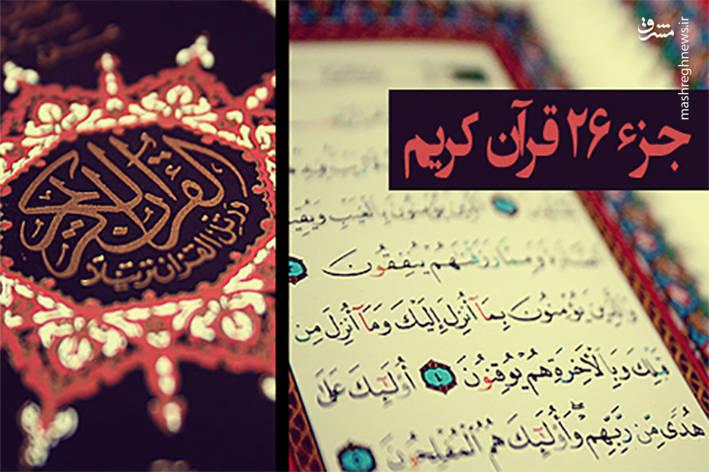 مشرق
mashreghnews.ir
جزء ۲۶ قرآن کریم
القرآن الكريم
ورتل القرآن ترتيلا
يُؤْمِنُونَ بِالْغَيْبِ وَيُقِي
وَمِمَّا رَزَقْنَاهُمْ يُنْفِقُونَ ٣
وَالَّذِينَ يُؤْمِنُونَ بِمَآ أُنْزِلَ إِلَيْكَ وَمَآ أُنْزِلَ مِنْ
قَبْلِكَ وَبِالْأَخِرَةِ هُمْ يُوقِنُونَ ٤ أُولَٰٓئِكَ عَلَىٰ
هُدًى مِنْ رَبِّهِمْ وَأُولَٰٓئِكَ هُمُ الْمُفْلِحُونَ